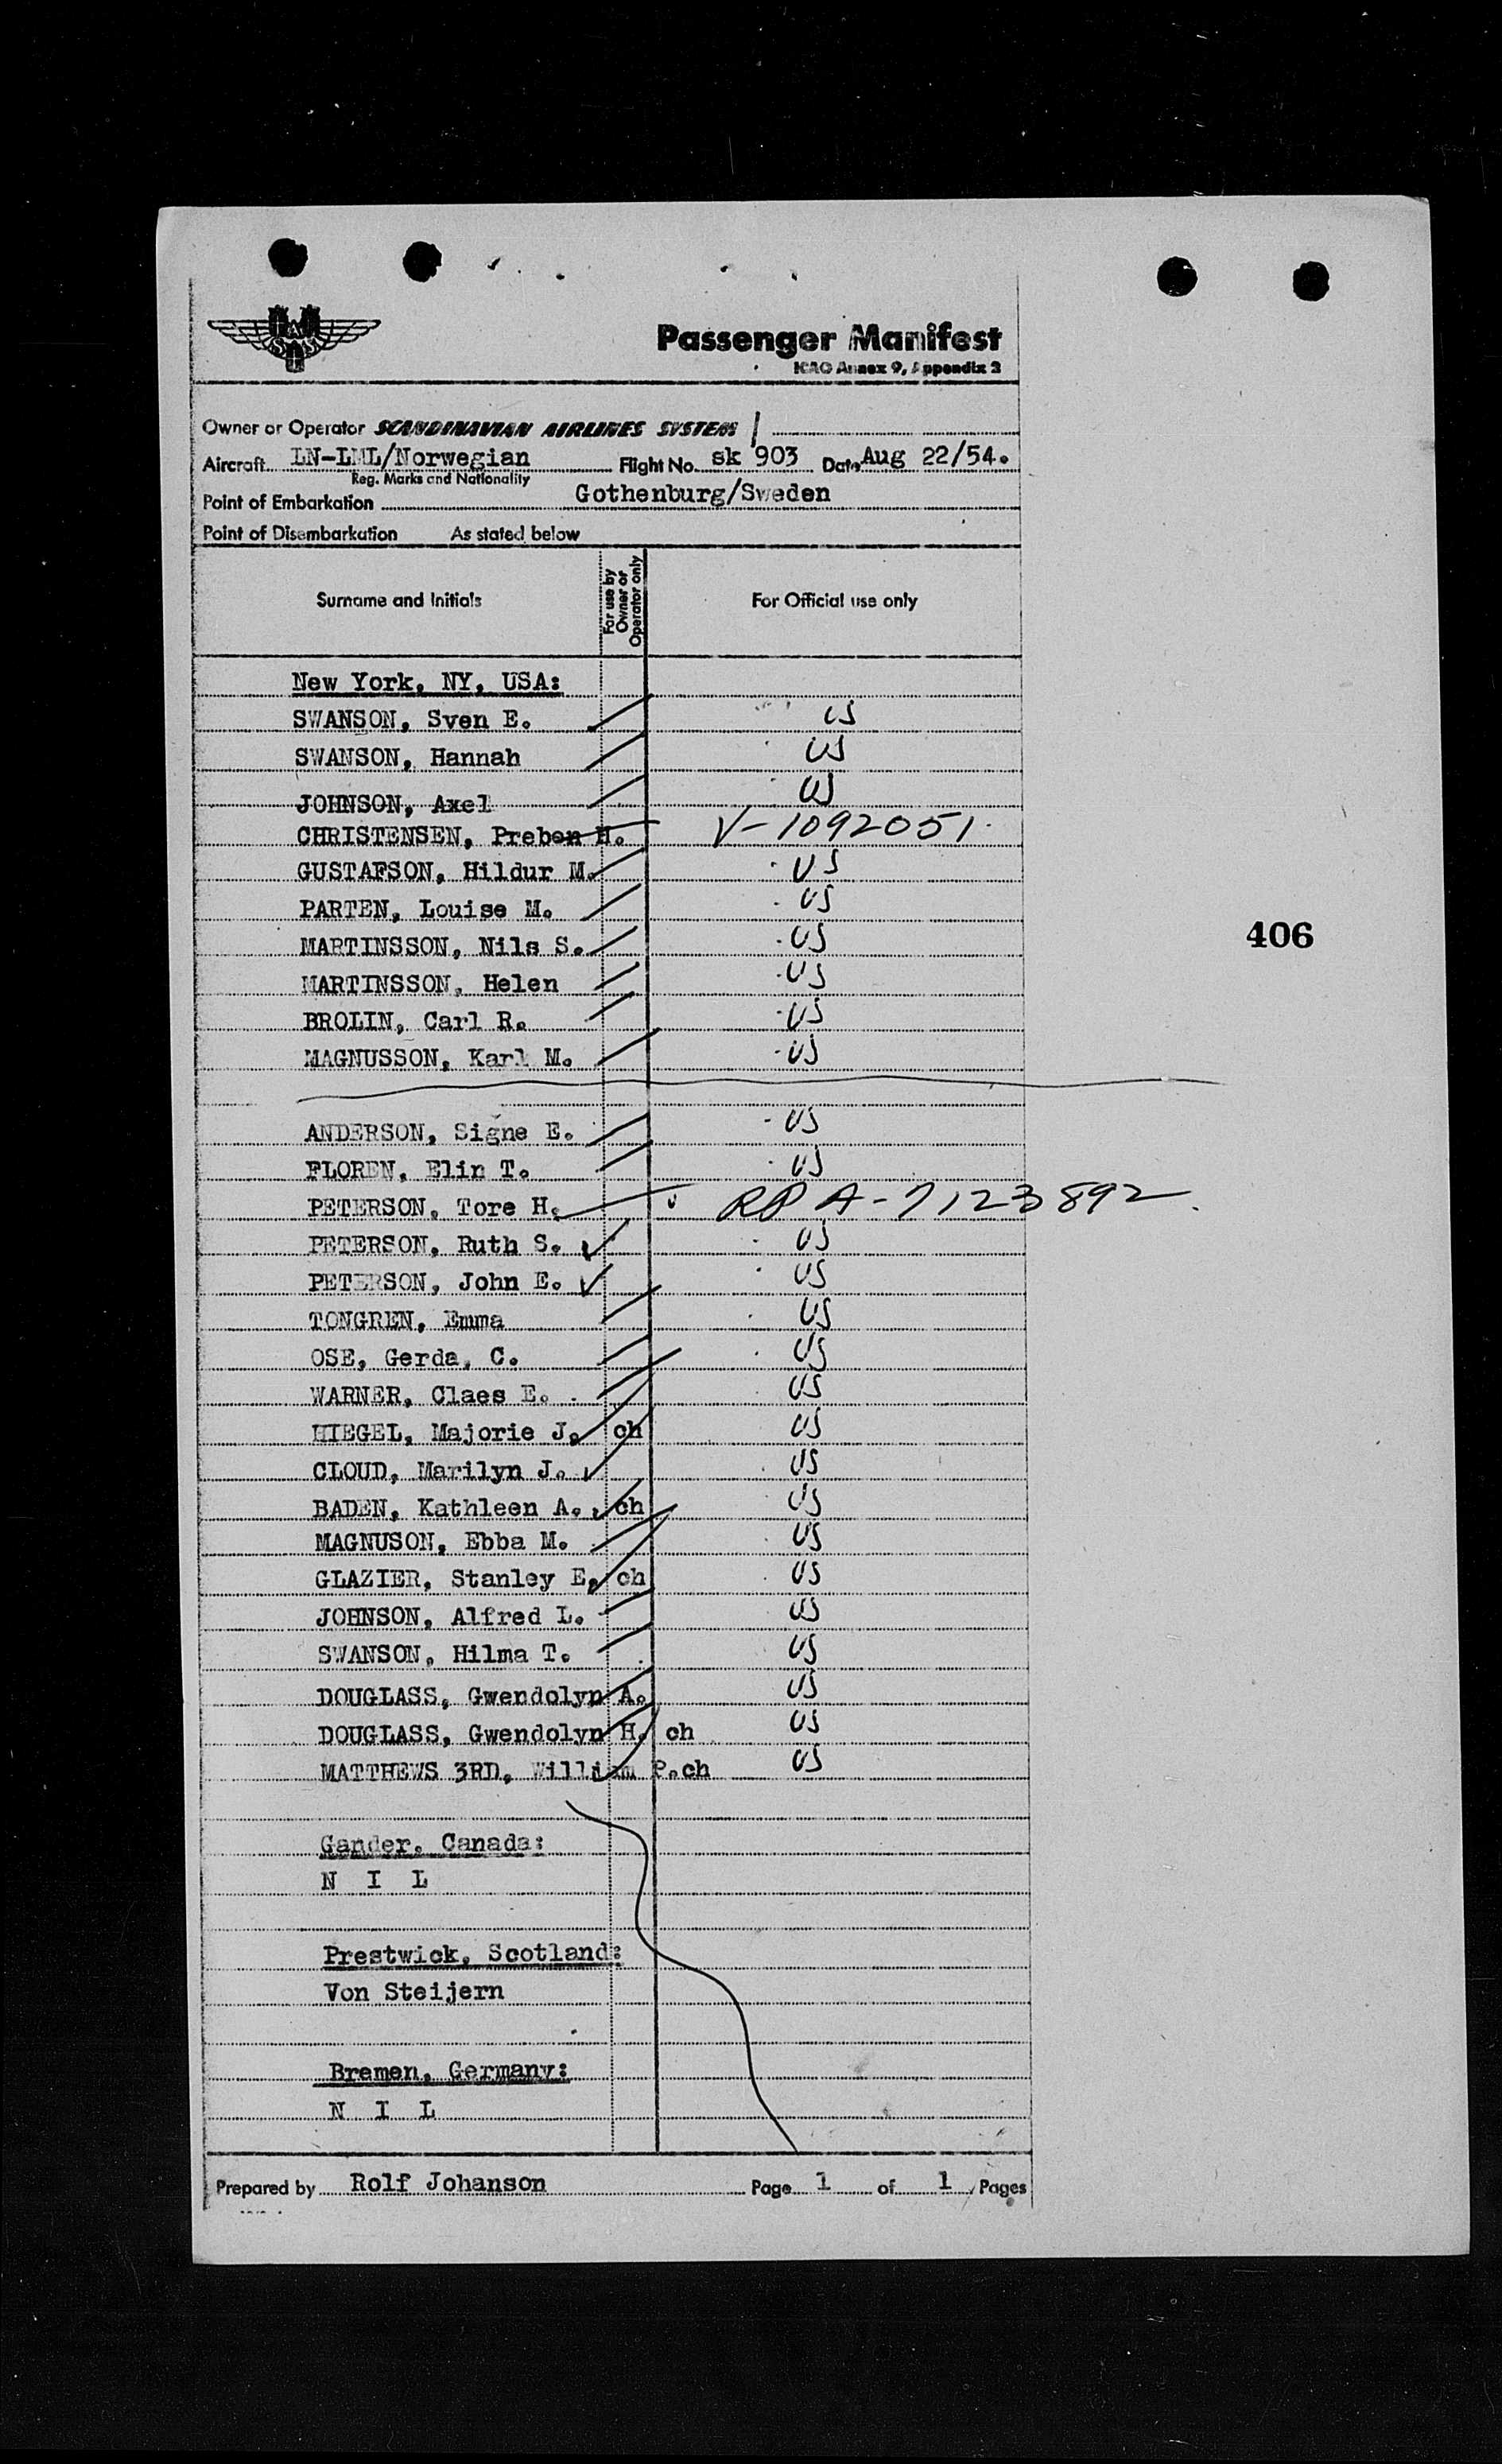 SAS
Passenger Manifest
ICAO Annex 9, Appendix 3
Owner or Operator SCANDINAVIAN AIRLINES SYSTEM
Aircraft LN-LML/Norwegian Flight No. sk 903 Date Aug 22/54.
Reg. Marks and Nationality
Point of Embarkation Gothenburg/Sweden
Point of Disembarkation As stated below
Surname and Initials For use by Owner or Operator only For Official use only
New York, NY, USA:
SWANSON, Sven E. US
SWANSON, Hannah US
JOHNSON, Axel US
CHRISTENSEN, Preben H. V-1092051.
GUSTAFSON, Hildur M. US
PARTEN, Louise M. US
406
MARTINSSON, Nils S. US
MARTINSSON, Helen US
BROLIN, Carl R. US
MAGNUSSON, Karl M. US
ANDERSON, Signe E. US
FLOREN, Elin T. US
PETERSON, Tore H. RP A-7123892.
PETERSON, Ruth S. US
PETERSON, John E. US
TONGREN, Emma US
OSE, Gerda, C. US
WARNER, Claes E. US
HIEGEL, Majorie J. ch US
CLOUD, Marilyn J. US
BADEN, Kathleen A. ch US
MAGNUSON, Ebba M. US
GLAZIER, Stanley E. ch US
JOHNSON, Alfred L. US
SWANSON, Hilma T. US
DOUGLASS, Gwendolyn A. US
DOUGLASS, Gwendolyn H. ch US
MATTHEWS 3RD, William P.ch US
Gander, Canada:
N I L
Prestwick, Scotland:
Von Steijern
Bremen, Germany:
N I L
Prepared by Rolf Johanson Page 1 of 1 Pages